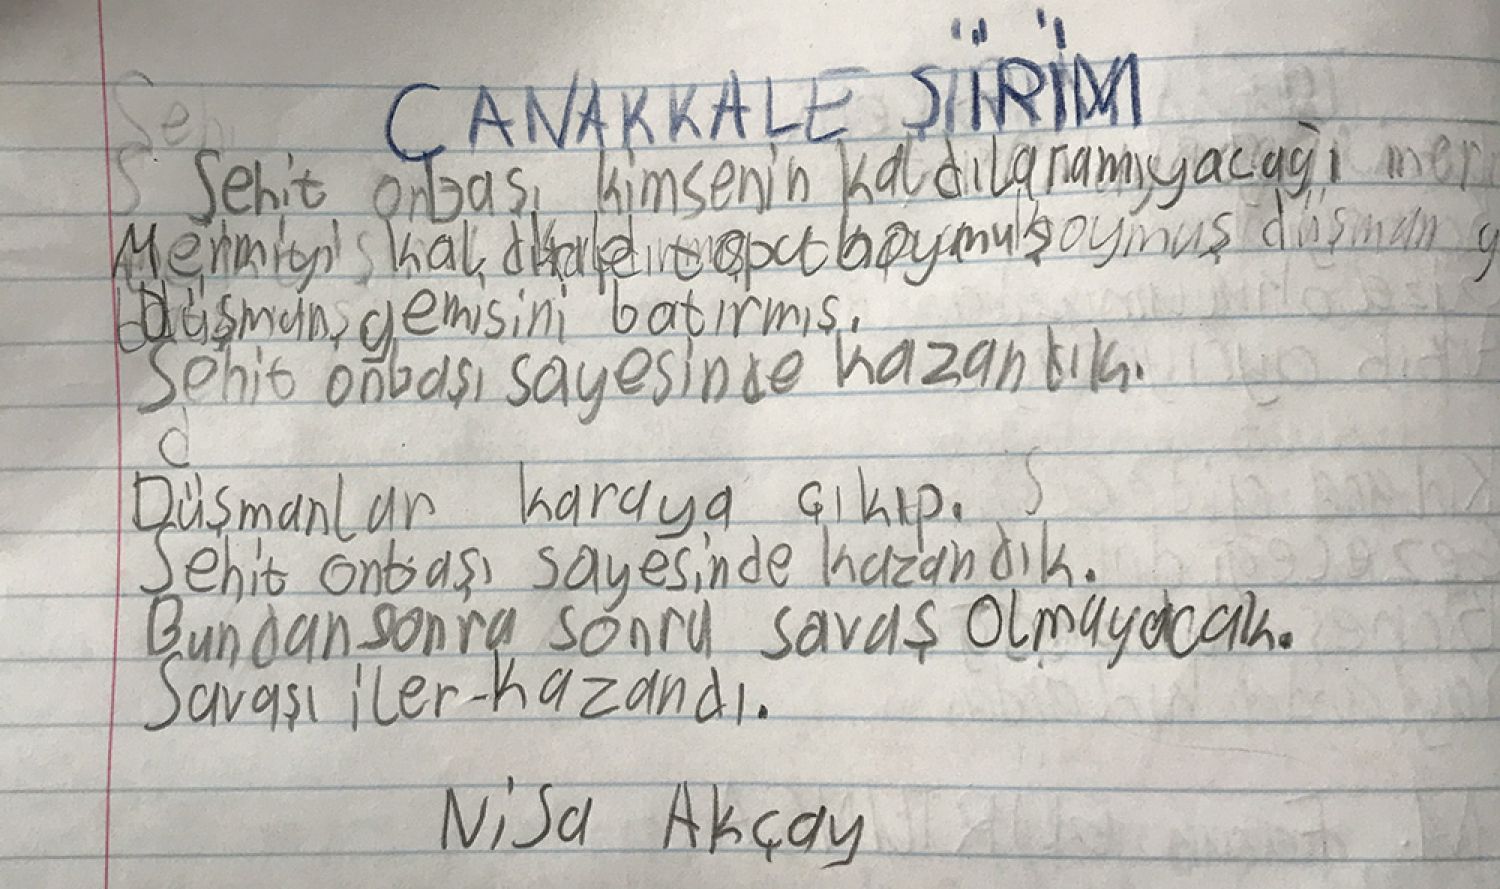 ÇANAKKALE ŞİİRİM
Şehit onbaşı kimsenin kaldılaramıyacağı mer
Mermiyi kaldırıp topa koymuş düşman g
Düşman gemisini batırmış.
Şehit onbaşı sayesinde kazandık.
Düşmanlar karaya çıkıp.
Şehit onbaşı sayesinde kazandık.
Bundan sonra sonra savaş olmayacak.
Savaşı iler-kazandı.
Nisa Akçay